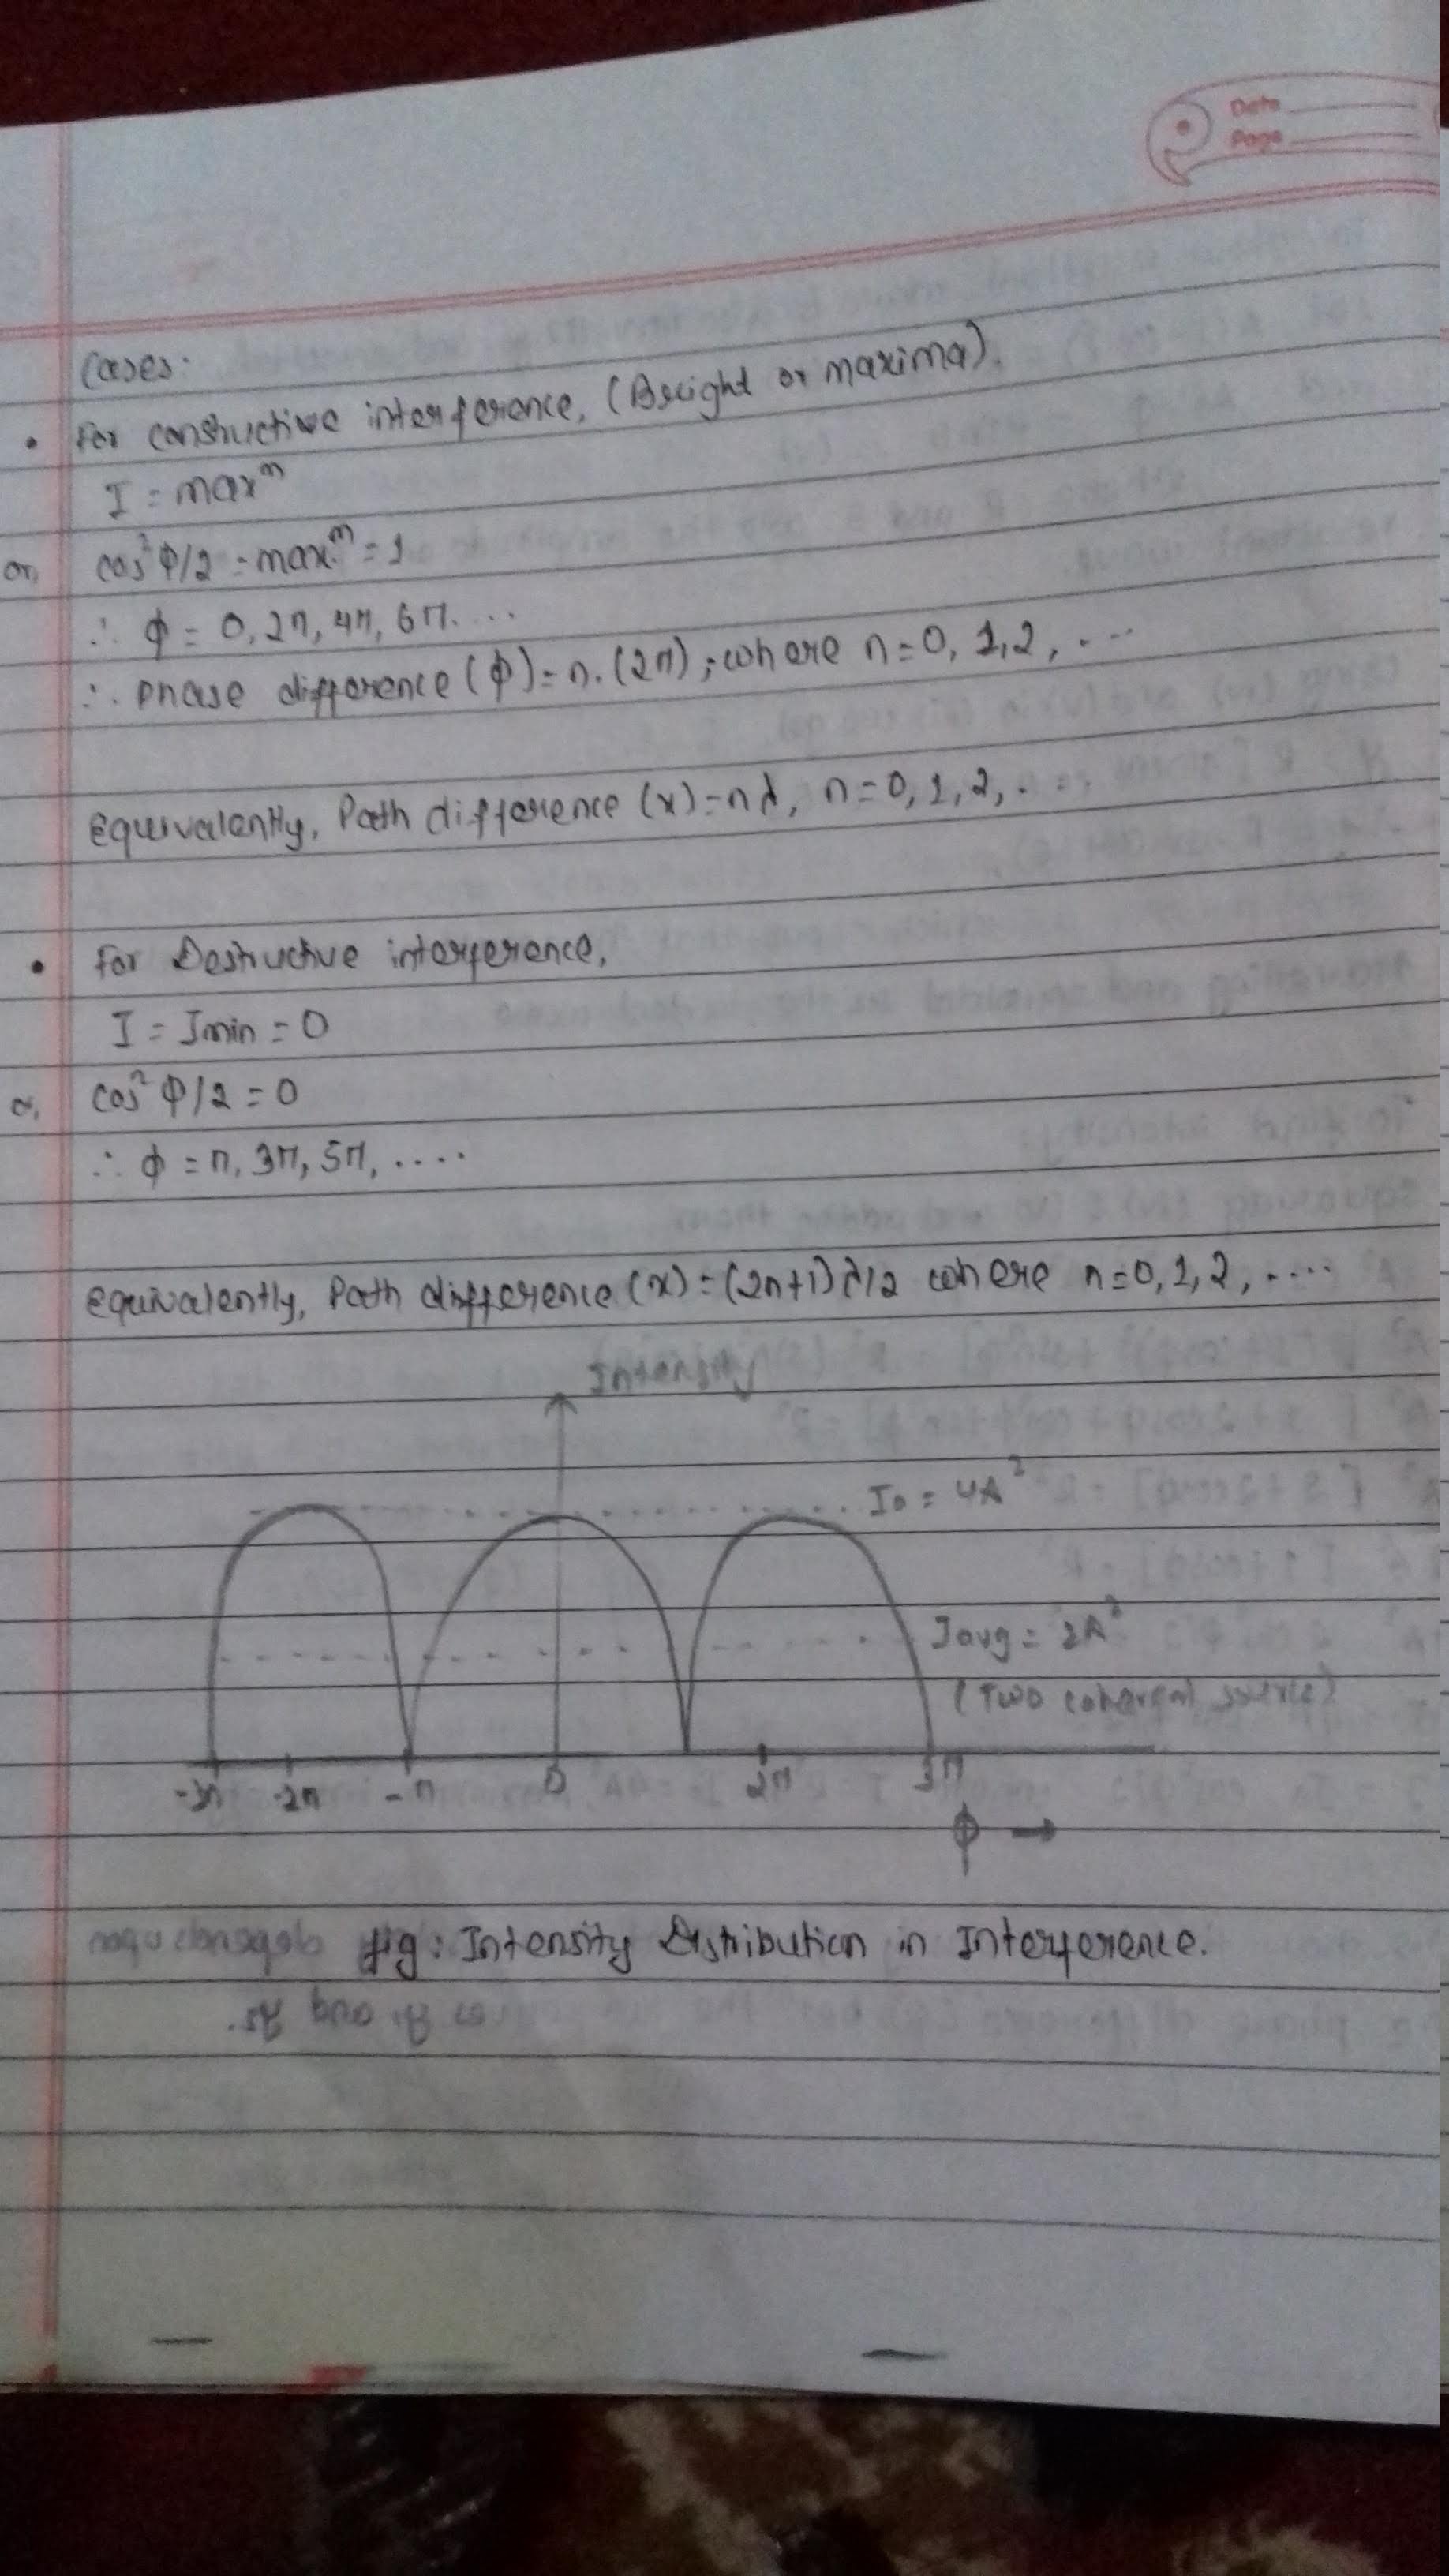 Date
Page
Cases:
• For constructive interference, (Bright or maxima).
I = maxᵐ
or, cos² φ/2 = maxᵐ = 1
∴ φ = 0, 2π, 4π, 6π....
∴ phase difference (φ) = n. (2π) ; where n = 0, 1, 2, ....
Equivalently, Path difference (x) = nλ, n = 0, 1, 2, . . .
• For Destructive interference,
I = Imin = 0
or, cos² φ/2 = 0
∴ φ = π, 3π, 5π, ....
Equivalently, Path difference (x) = (2n+1) λ/2 where n = 0, 1, 2, .....
Intensity
I₀ = 4A²
Iavg = 2A²
(Two coherent source)
-3π -2π -π 0 2π 3π
φ →
fig: Intensity Distribution in Interference.